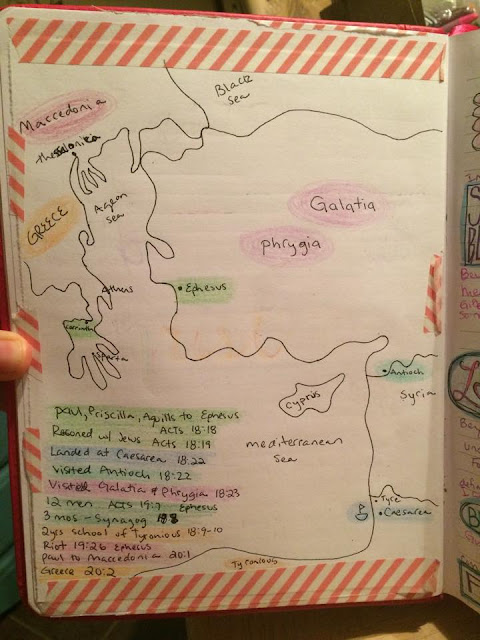 Black
sea
Maccedonia
thessalonica
Agean
sea
GREECE
Galatia
phrygia
Athens
Ephesus
Corrinth
Sparta
Antioch
Syria
cyprus
mediterranean
sea
Tyre
Caesarea
paul, Priscilla, Aquilla to Ephesus
ACTS 18:18
Resoned w/ Jews ACTS 18:19
Landed at Caesarea 18:22
visited Antioch 18:22
Visited Galatia & Phrygia 18:23
12 men Acts 19:7 Ephesus
3 mos - Synagog 19:8
2yrs school of Tyronious 18:9-10
Riot 19:26 Ephesus
paul to Maccedonia 20:1
Greece 20:2
Tyronious